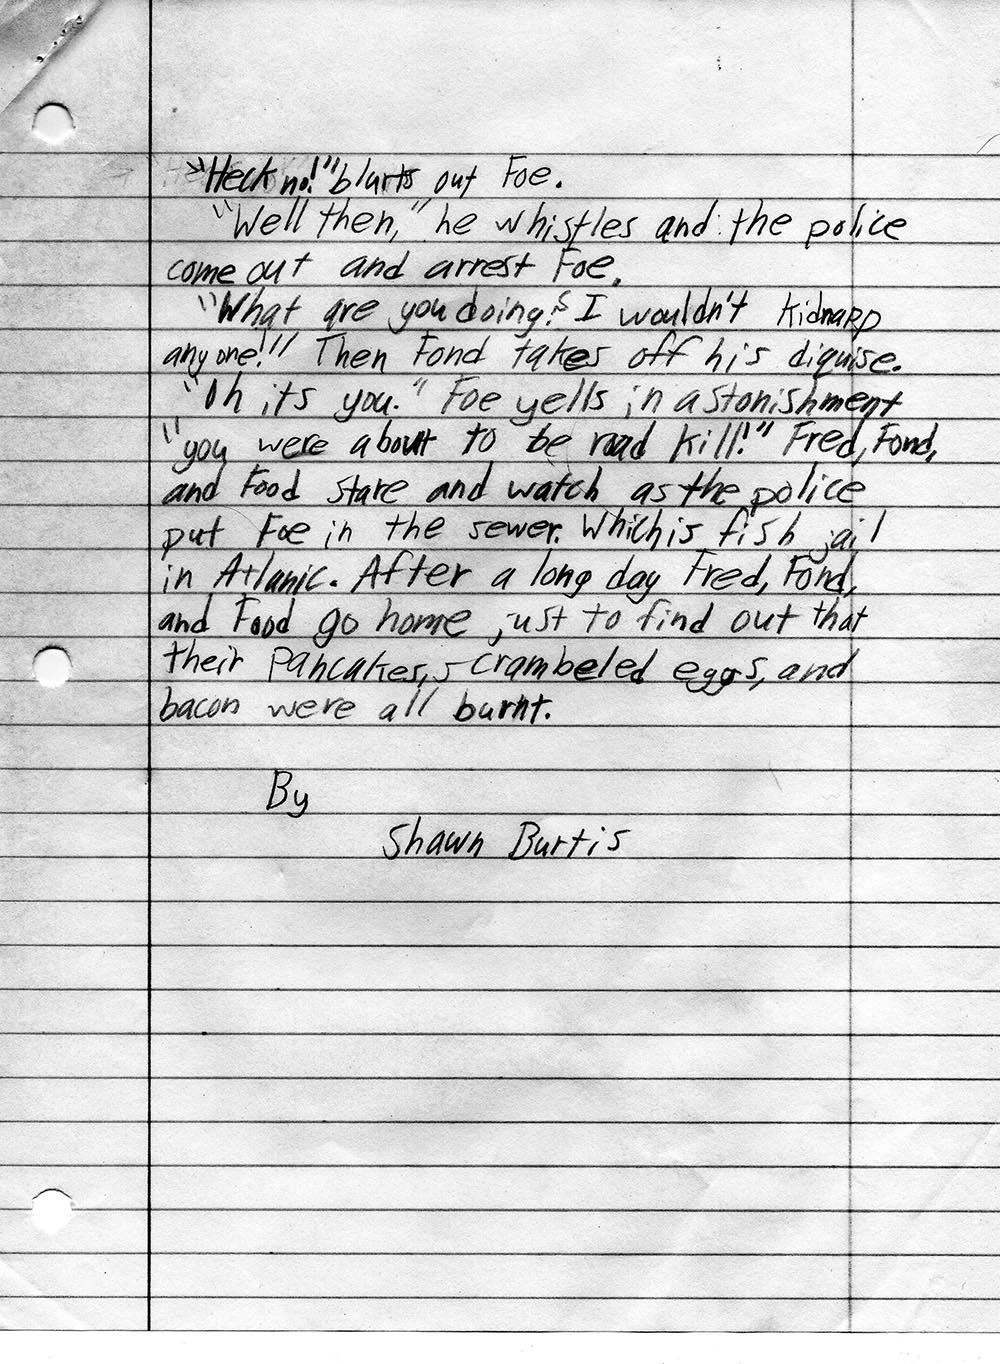 "Heck no!" blurts out Foe.
"Well then," he whistles and the police
come out and arrest Foe.
"What are you doing? I wouldn't kidnapp
anyone!" Then Fond takes off his diquise.
"Oh its you." Foe yells in astonishment
"you were about to be road kill!" Fred, Fond,
and Food stare and watch as the police
put Foe in the sewer. Which is fish jail
in Atlanic. After a long day Fred, Fond,
and Food go home just to find out that
their pancakes, scrambeled eggs, and
bacon were all burnt.
By
Shawn Burtis